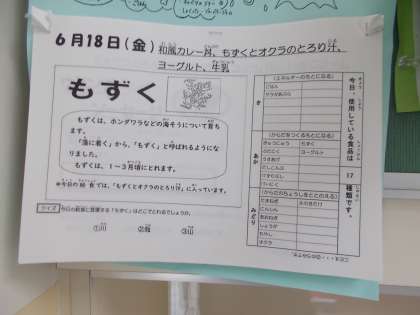 6月18日(金) 和風カレー丼、もずくとオクラのとろり汁、
ヨーグルト、牛乳
もずく
もずくは、ホンダワラなどの海そうについて育ち
ます。
「藻に着く」から、「もずく」と呼ばれるようにな
りました。
もずくは、1~3月頃にとれます。
※今日の給食では、「もずくとオクラのとろり汁」に入っています。
クイズ 今日の給食に登場する「もずく」はどこでとれるでしょうか。
①川 ②海 ③山
今日、使用している食品は 17 種類です。
(エネルギーのもとになる)
き
ごはん
(からだをつくるもとになる)
あか
ぎゅうにゅう もずく
ヨーグルト
(からだのちょうしをととのえる)
みどり
たまねぎ
にんじん
しょうが
オクラ